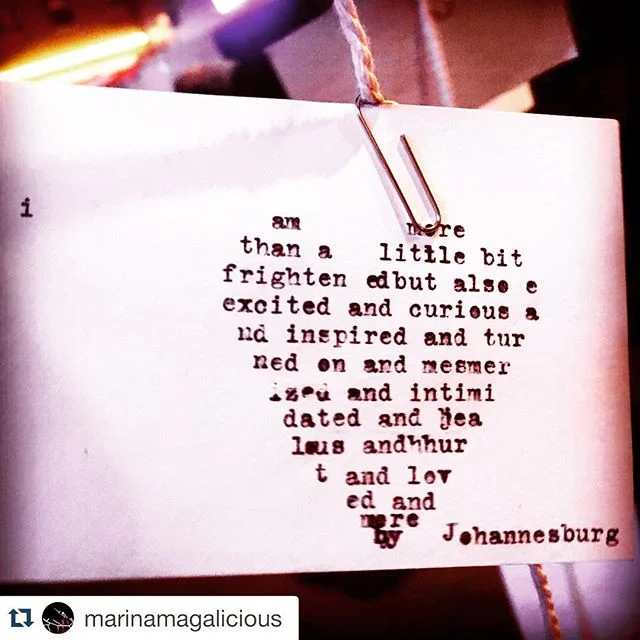 i
am more
than a little bit
frighten edbut also e
excited and curious a
nd inspired and tur
ned on and mesmer
ized and intimi
dated and jea
lous andhhur
t and lov
ed and
more
by Johannesburg
marinamagalicious